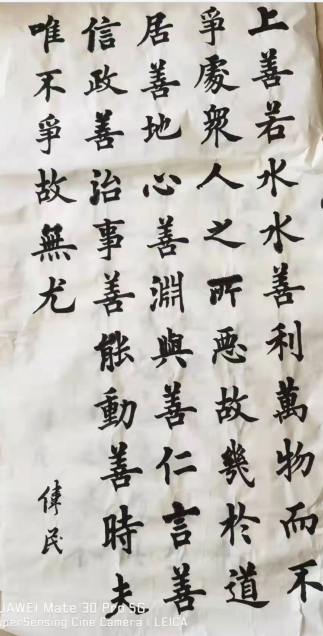 上善若水水善利萬物而不
爭處衆人之所惡故幾於道
居善地心善淵與善仁言善
信政善治事善能動善時夫
唯不爭故無尤
偉民
HUAWEI Mate 30 Pro 5G
SuperSensing Cine Camera | LEICA